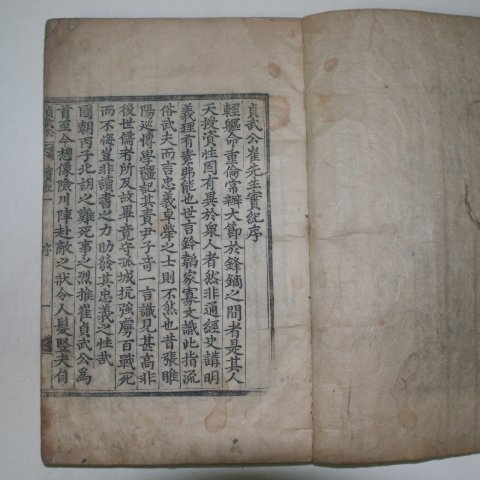 貞武公崔先生實紀序
輕軀命重倫常辦大節於鋒鏑之間者是其人
天投資性固有異於衆人者然非通經史講明
義理有素弗能也世言鈐韜家寡文識此指流
俗武夫而言忠義卓犖之士則不然也昔張睢
陽巡博學彊記其責尹子奇一言識見甚高非
後世儒者所及故畢竟守孤城抗強虜百戰死
而不悔豈非讀書之力助發其忠義之性哉
國朝丙子北胡之難死事之烈推崔貞武公爲
首至今想像險川陣赴敵之狀令人髮竪夫自
貞武公
序
一